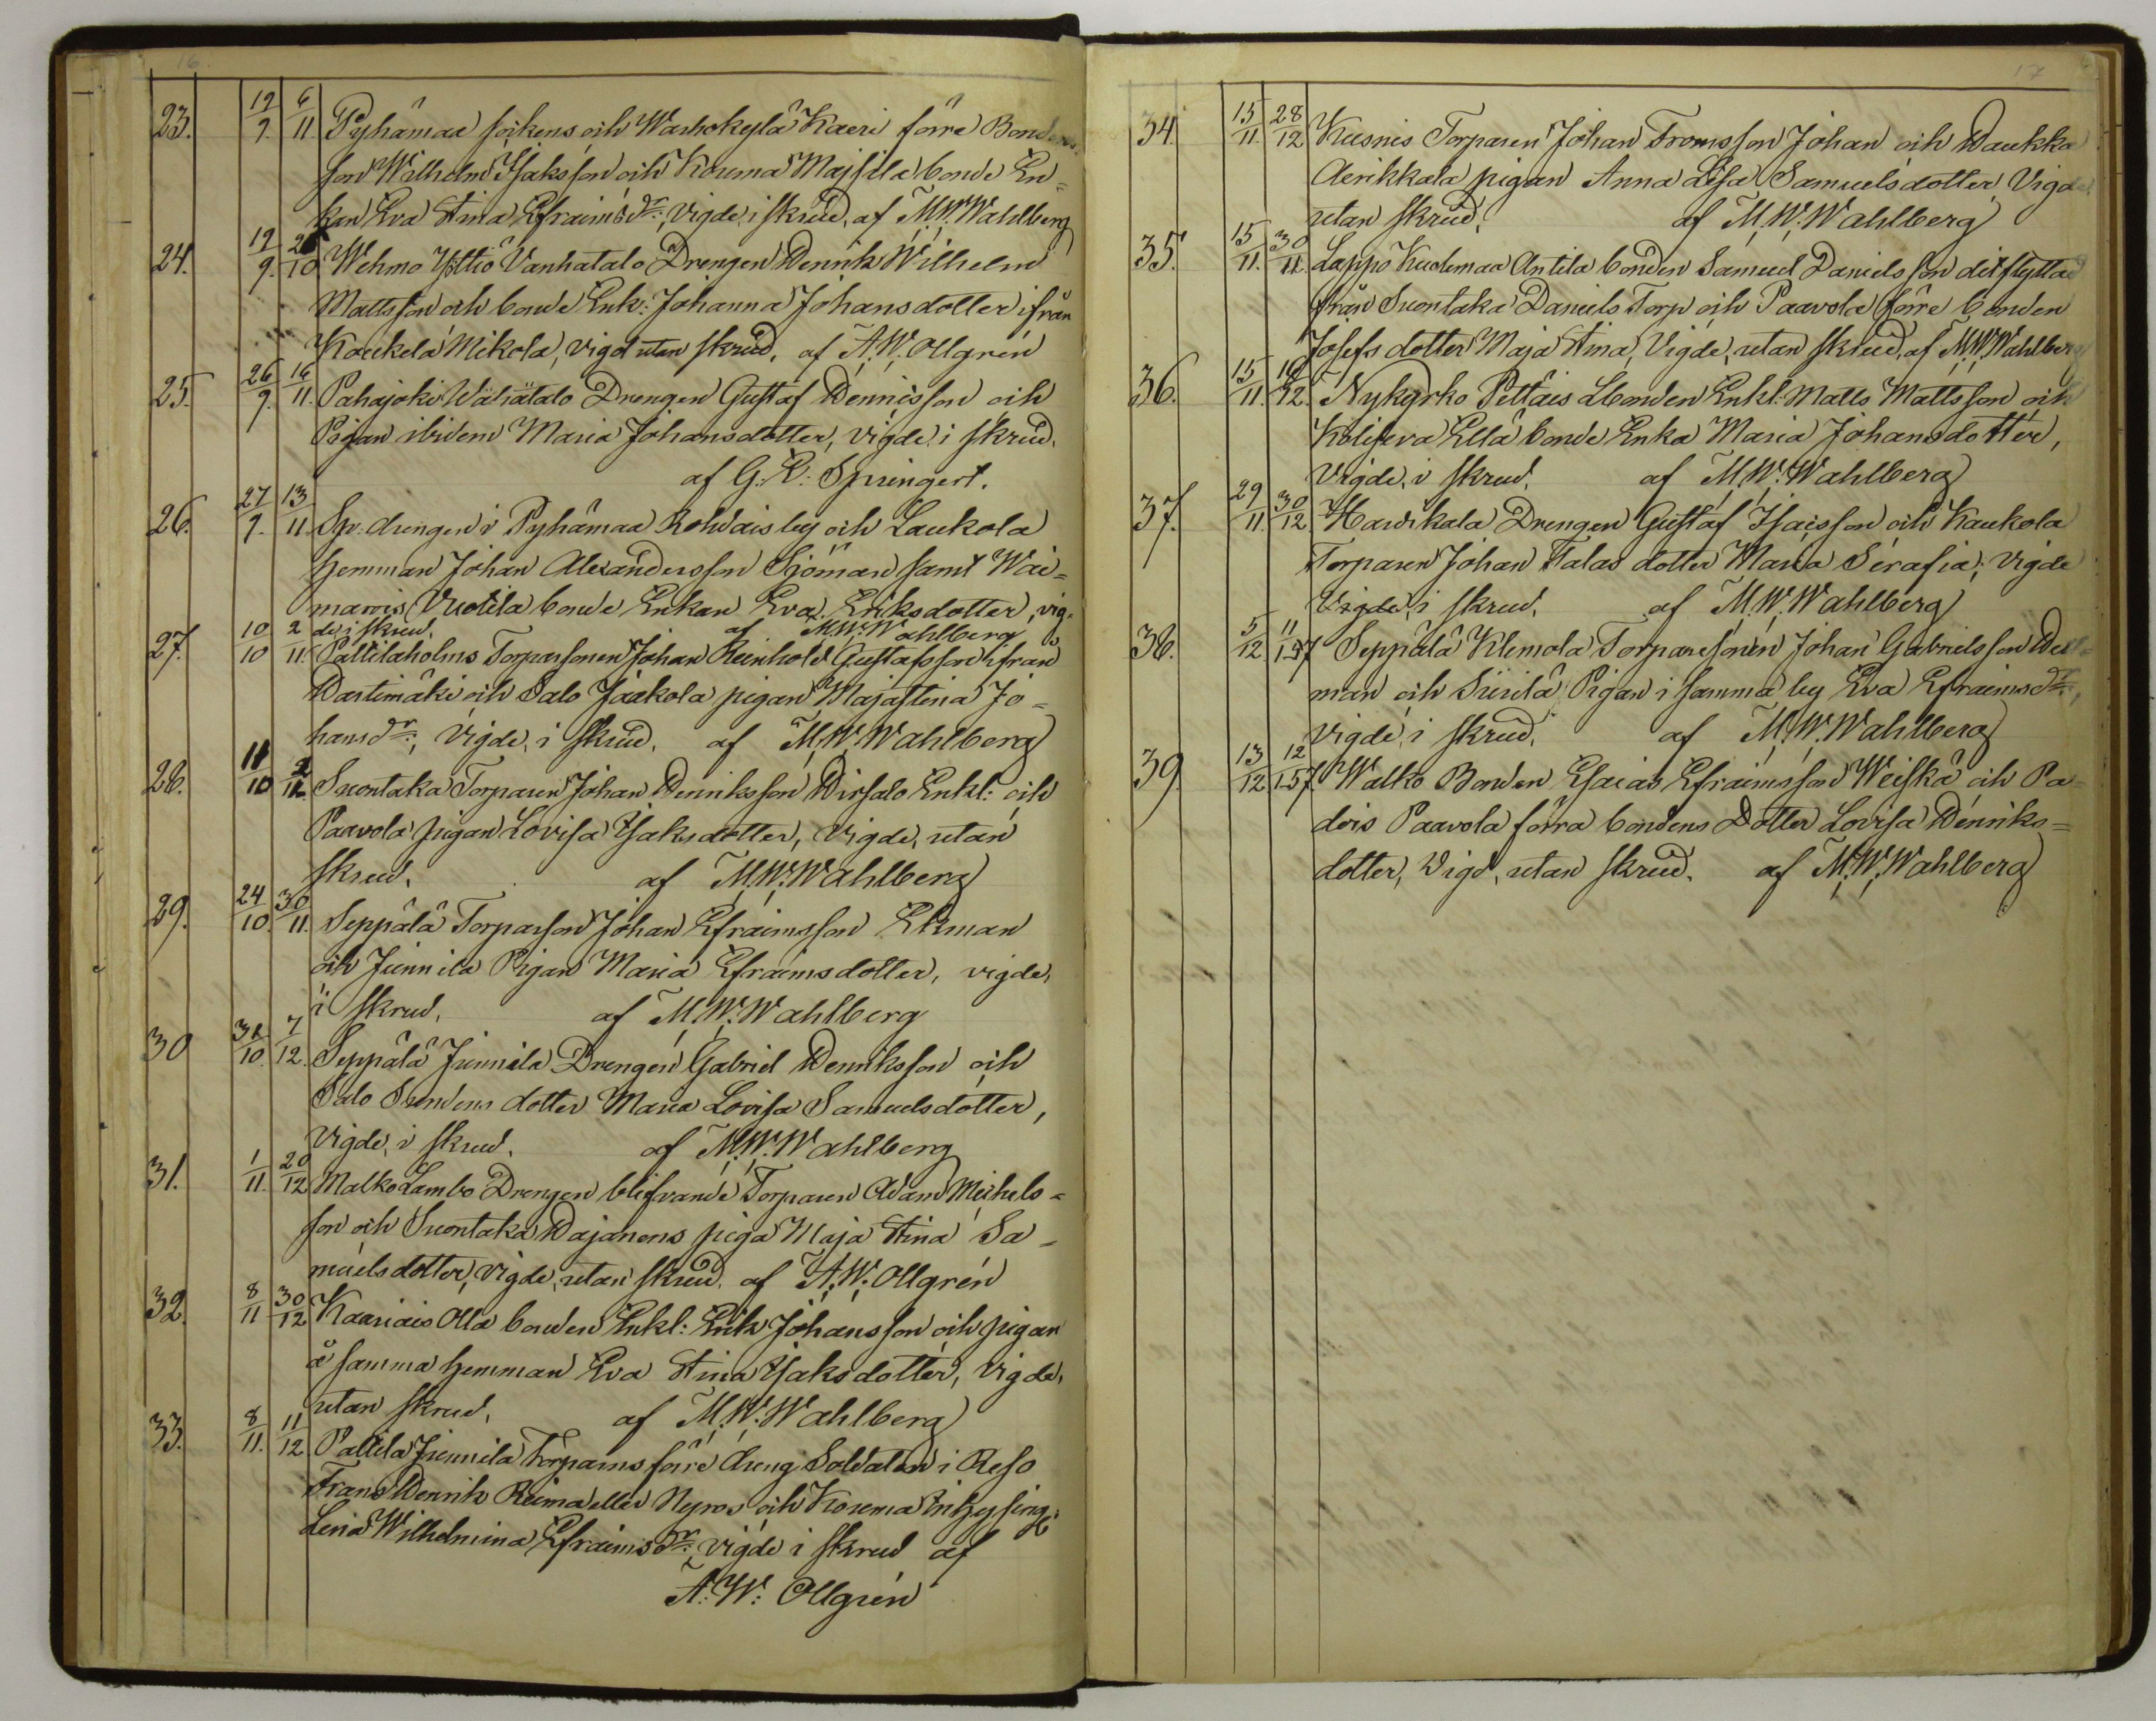 16
23. 19/9. 6/11. Pyhämaa sockens och Warhokylä Kaeri förre Bondens
son Wilhelm Isaksson och Kouma Majsila bonde En=
kan Eva Stina Efraimsdr:, Vigde, i skrud, af M.W. Wahlberg
24. 19/9. 26/10 Wehmo Yltiö Vanhatalo Drengen Henrik Wilhelm
Mattsson och bonde Enk: Johanna Johansdotter ifrån
Koukela Mikola, vigd utan skrud, af A.W. Ollgrén
25. 26/9. 16/11. Pahajoki Wähätalo Drengen Gustaf Hennisson och
Pigan ibidem Maria Johansdotter, vigde, i skrud,
af G: E: Springert.
26. 27/9. 13/11. Sp. drengen i Pyhämaa Rohdais by och Laukola
hemman Johan Alexandersson Sjöman samt Wai=
marois Vuotila bonde Enkan Eva Eriksdotter, vig-
de i skrud, af M.W. Wahlberg
27. 10/10 2/11. Paltilaholms Torparsonen Johan Reinhold Gustafsson ifrån
Hartimäki och Salo Jaakola pigan Majastina Jo=
hansdr:, Vigde, i skrud, af M.W. Wahlberg
28. 11/10 2/12. Suontaka Torparen Johan Henriksson Hirsalo Enkl: och
Paavola pigan Lovisa Isaksdotter, Vigde, utan
skrud, af M.W. Wahlberg
29. 24/10. 30/11. Seppälä Torparson Johan Efraimsson Ekman
och Junnila Pigan Maria Efraimsdotter, vigde,
i skrud, af M.W. Wahlberg
30 31/10. 7/12. Seppälä Junnila Drengen Gabriel Henriksson och
Salo Sundens dotter Maria Lovisa Samuelsdotter,
Vigde, i skrud, af M.W. Wahlberg
31. 1/11. 20/12 Malko Lambo Drengen blifvande Torparen Adam Michels=
son och Suontaka Hajanens piga Maja Stina Sa=
muelsdotter, Vigde, utan skrud, af A.W. Ollgrén
32. 8/11 30/12 Kaariais Olla bonden Enkl: Erik Johansson och pigan
å samma hemman Eva Stina Isaksdotter, Vigde,
utan skrud, af M.W. Wahlberg
33. 8/11. 11/12 Paltila Junnila Torpares förre dreng Soldaten i Reso
Frans Henrik Reima eller Nyroos och Kouma Inhysing
Lena Wilhelmina Efraimsdr: vigde i skrud af
A: W: Ollgrén
17
34. 15/11. 28/12 Kusnis Torparen Johan Fromsson Johan och Haukka
Aerikkala pigan Anna Lisa Samuelsdotter, Vigde,
utan skrud, af M.W. Wahlberg
35. 15/11. 30/11. Lappo Kudemaa Antila bonden Samuel Danielsson ditflyttad
från Suontaka Daniels Torp och Paavola förre bonden
Josefs dotter Maja Stina, Vigde, utan skrud, af M.W. Wahlberg
36. 15/11. 16/12. Nykyrko Pettäis Lbonden Enkl: Matts Mattsson och
Kölifeva Ella bonde Enka Maria Johansdotter,
Vigde, i skrud, af M.W. Wahlberg
37. 29/11. 30/12 Hawikala Drengen Gustaf Isaisson och Kaukola
Torparen Johan Falas dotter Maria Serafia, vigde
Vigde, i skrud, af M.W. Wahlberg
38. 5/12. 11/1.57 Seppälä Klemola Torparesonen Johan Gabrielsson Hell=
man och Siirilä Pigan i samma by Eva Efraimsdr:,
Vigde, i skrud, af M.W. Wahlberg
39. 13/12. 12/1.57 Walko Bonden Esaias Efraimsson Weiskä och Pa=
dois Paavola förra bondens Dotter Lovisa Henriks=
dotter, Vigd, utan skrud. af M.W. Wahlberg